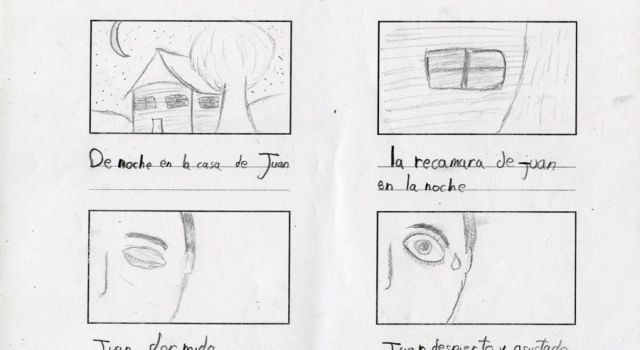 De noche en la casa de Juan
la recamara de juan
en la noche
Juan dormido
Juan despierto y asustado